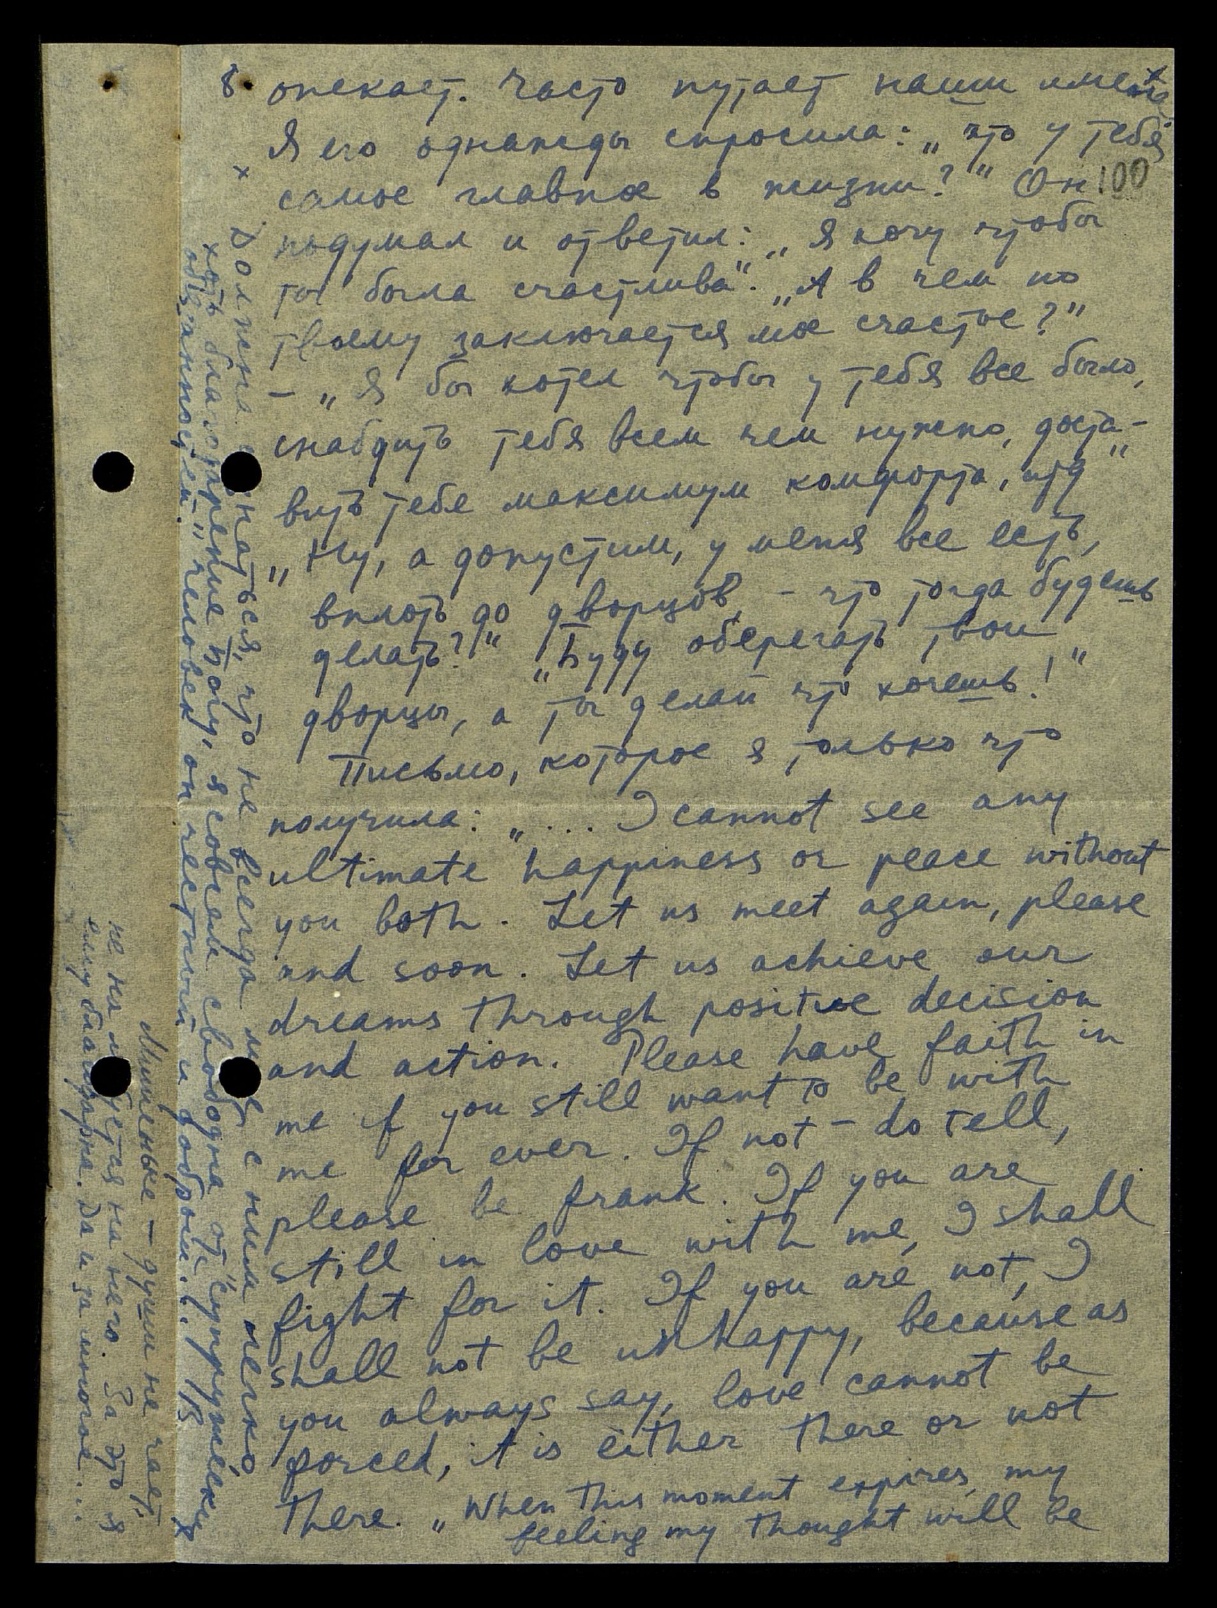 8. опекает. Часто путает наши имена x
Я его однажды спросила: „что у тебя
самое главное в жизни?" Он 100
подумал и ответил: „Я хочу чтобы
ты была счастлива". „А в чем по
твоему заключается мое счастье?"
– „Я бы хотел чтобы у тебя все было,
снабдить тебя всем чем нужно, доста-
вить тебе максимум комфорта, итд"
„Ну, а допустим, у меня все есть,
вплоть до дворцов, – что тогда будешь
делать?" „Буду оберегать твои
дворцы, а ты делай что хочешь!"
Письмо, которое я только что
получила: „.... I cannot see any
ultimate happiness or peace without
you both. Let us meet again, please
and soon. Let us achieve our
dreams through positive decision
and action. Please have faith in
me if you still want to be with
me for ever. If not – do tell,
please be frank. If you are
still in love with me, I shall
fight for it. If you are not, I
shall not be unhappy, because as
you always say, love cannot be
forced, it is either there or not
there. „When this moment expires, my
feeling my thought will be
x Должна сознаться, что не всегда мне с ним легко
хоть благодарение Богу, я совсем свободна от „супружеских
обязанностей" человек он честный и добрый.
Мишеньке – души не чает,
не налюбуется на него. За это я
ему благодарна. Да и за многое...